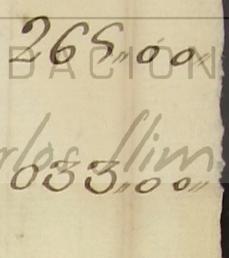 265,,00,,
DACIÓN
rlos Slim
033,,00,,